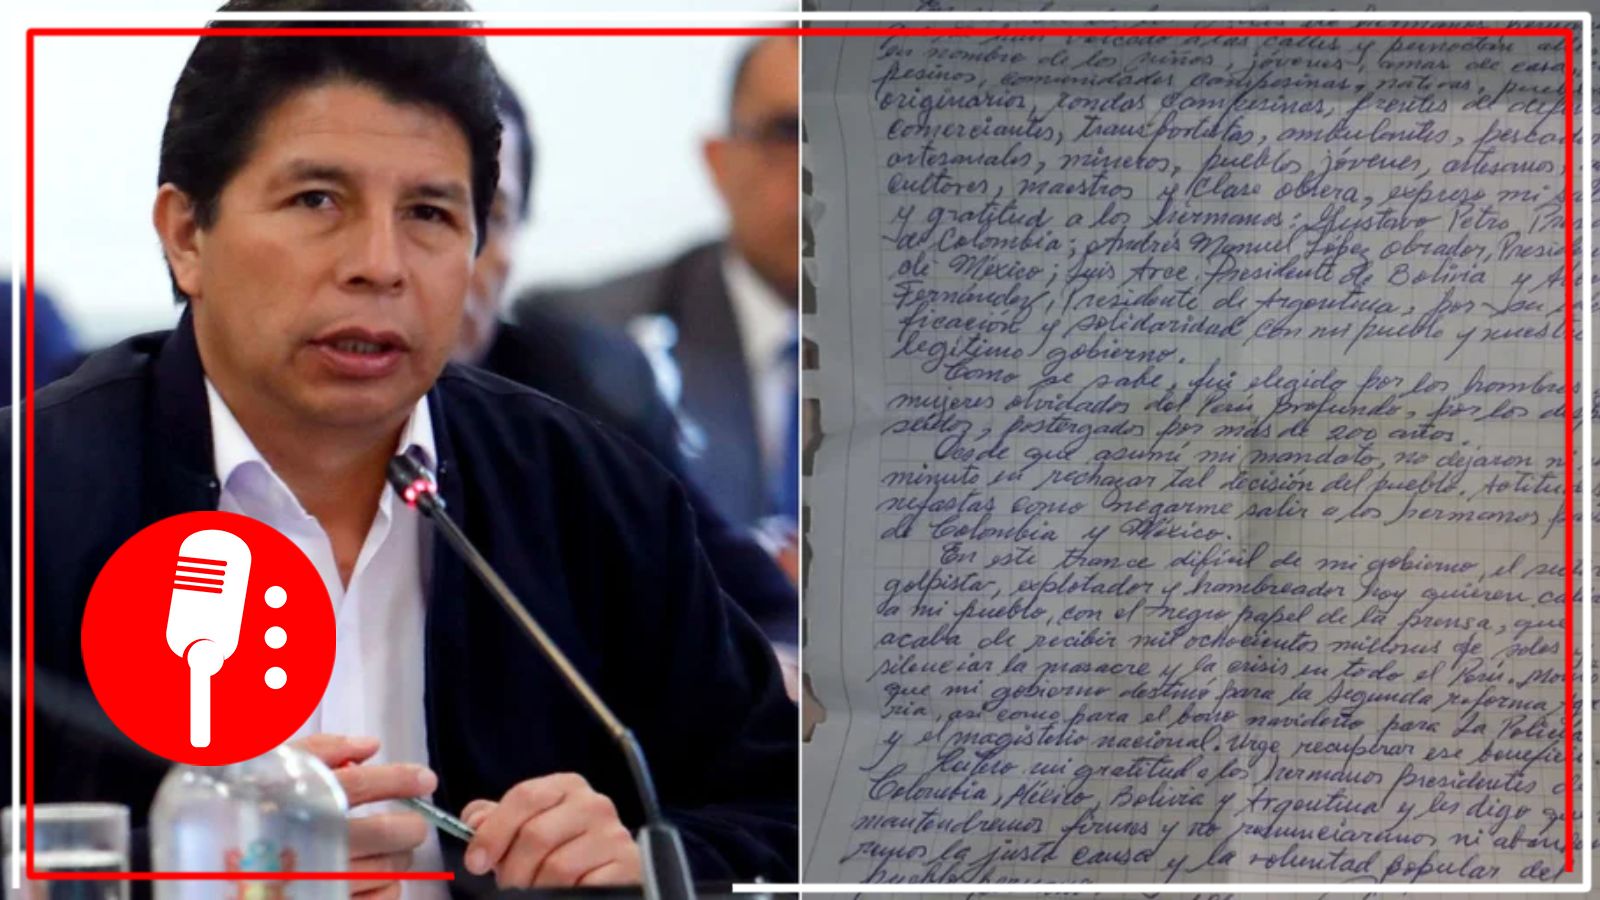 de hermanos
volcado a las calles y pernoctan
en nombre de los niños, jóvenes, amas de casa
pesinos, comunidades campesinas, nativas,
originarios, rondas campesinas, frentes de
comerciantes, transportistas, ambulantes,
artesanales, mineros, pueblos jóvenes, artesanos,
cultores, maestros y clase obrera, expreso mi
y gratitud a los hermanos: Gustavo Petro,
de Colombia; Andrés Manuel López Obrador,
de México; Luis Arce, Presidente de Bolivia y
Fernández, Presidente de Argentina, por su
ficación y solidaridad con mi pueblo y
legítimo gobierno.
Como se sabe, fui elegido por los hombres
mujeres olvidados del Perú profundo, por los
seidos, postergados por más de 200 años.
Desde que asumí mi mandato, no dejaron ni
minuto en rechazar tal decisión del pueblo.
nefastas como negarme salir a los hermanos
de Colombia y México.
En este trance difícil de mi gobierno, el
golpista, explotador y hambreador hoy quieren
a mi pueblo, con el negro papel de la prensa, que
acaba de recibir mil ochocientos millones de soles
silenciar la masacre y la crisis en todo el Perú.
que mi gobierno destinó para la segunda reforma
ria, así como para el bono navideño para la Policía
y el magisterio nacional. Urge recuperar ese
Reitero mi gratitud a los hermanos presidentes
Colombia, México, Bolivia y Argentina y les digo que
mantendremos firmes y no renunciaremos ni
remos la justa causa y la voluntad popular del